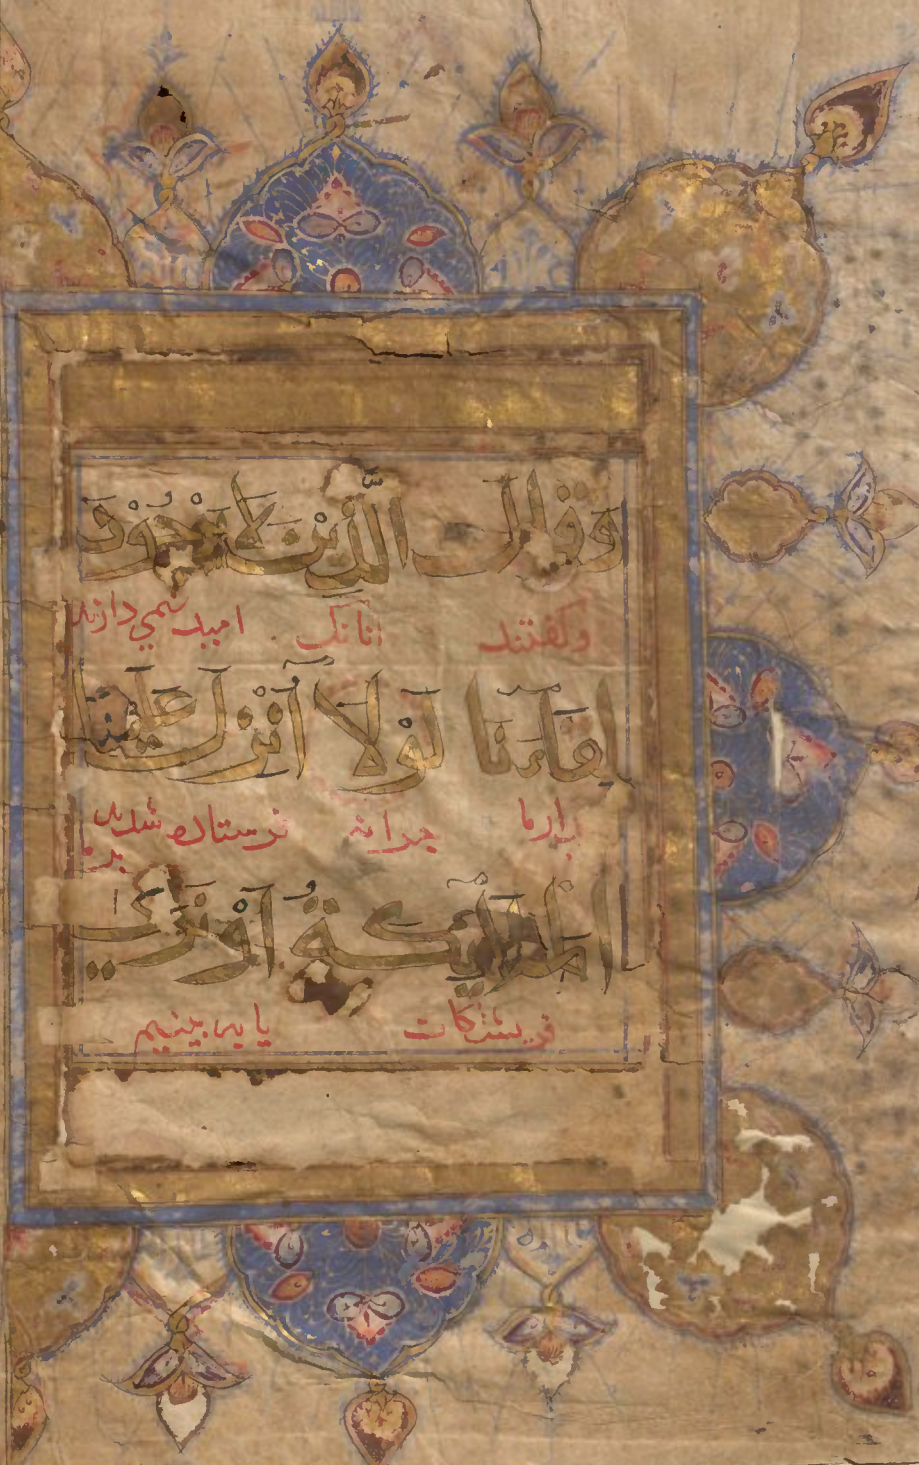 وقال الذين لا يرجون
وكفتند انانك اميد نمي دارند
لقاءنا لولا أنزل علينا
ديدار ما چرا نه فرستاده شد بر
الملئكة أو نرى
فريشتكان يا نه بينيم